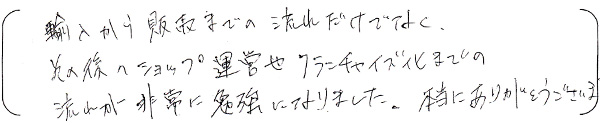 輸入から販売までの流れだけでなく、
その後のショップ運営やフランチャイズ化までの
流れが非常に勉強になりました。本当にありがとうございま